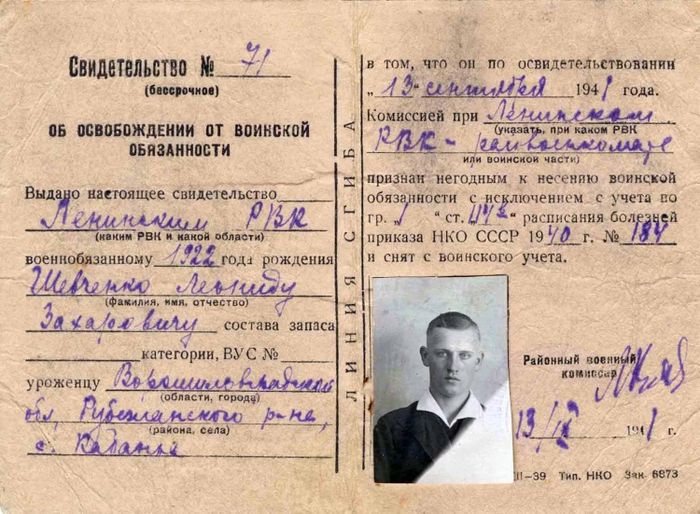 Свидетельство № 71
(бессрочное)
ОБ ОСВОБОЖДЕНИИ ОТ ВОИНСКОЙ
ОБЯЗАННОСТИ
Выдано настоящее свидетельство
Ленинским РВК
(каким РВК и какой области)
военнообязанному 1922 года рождения
Шевченко Леониду
(фамилия, имя, отчество)
Захаровичу состава запаса
категории, ВУС №
уроженцу Ворошиловградской
(области, города)
обл, Рубежанского р-на,
(района, села)
с. Кабанье
ЛИНИЯ СГИБА
в том, что он по освидетельствовании
„13" сентября 1941 года.
Комиссией при Ленинском
(указать, при каком РВК
РВК - райвоенкомате
или воинской части)
признан негодным к несению воинской
обязанности с исключением с учета по
гр. 1 ст. расписания болезней
приказа НКО СССР 1940 г. № 184
и снят с воинского учета.
Районный военный
комиссар
13/IX 1941 г.
III-39 Тип. НКО Зак. 6873